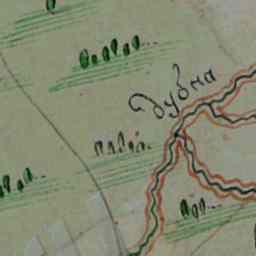 Дубна